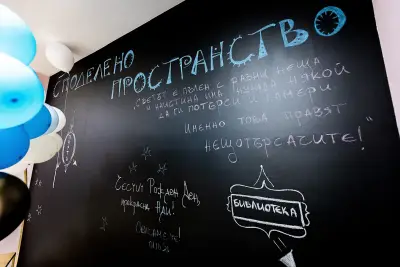 СПОДЕЛЕНО ПРОСТРАНСТВО
"СВЕТЪТ Е ПЪЛЕН С РАЗНИ НЕЩА
И НАИСТИНА ИМА НУЖДА НЯКОЙ
ДА ГИ ПОТЪРСИ И НАМЕРИ
ИМЕННО ТОВА ПРАВЯТ
НЕЩОТЪРСАЧИТЕ!"
Честит Рожден Ден,
прекрасна
Обичаме те!
БИБЛИОТЕКА